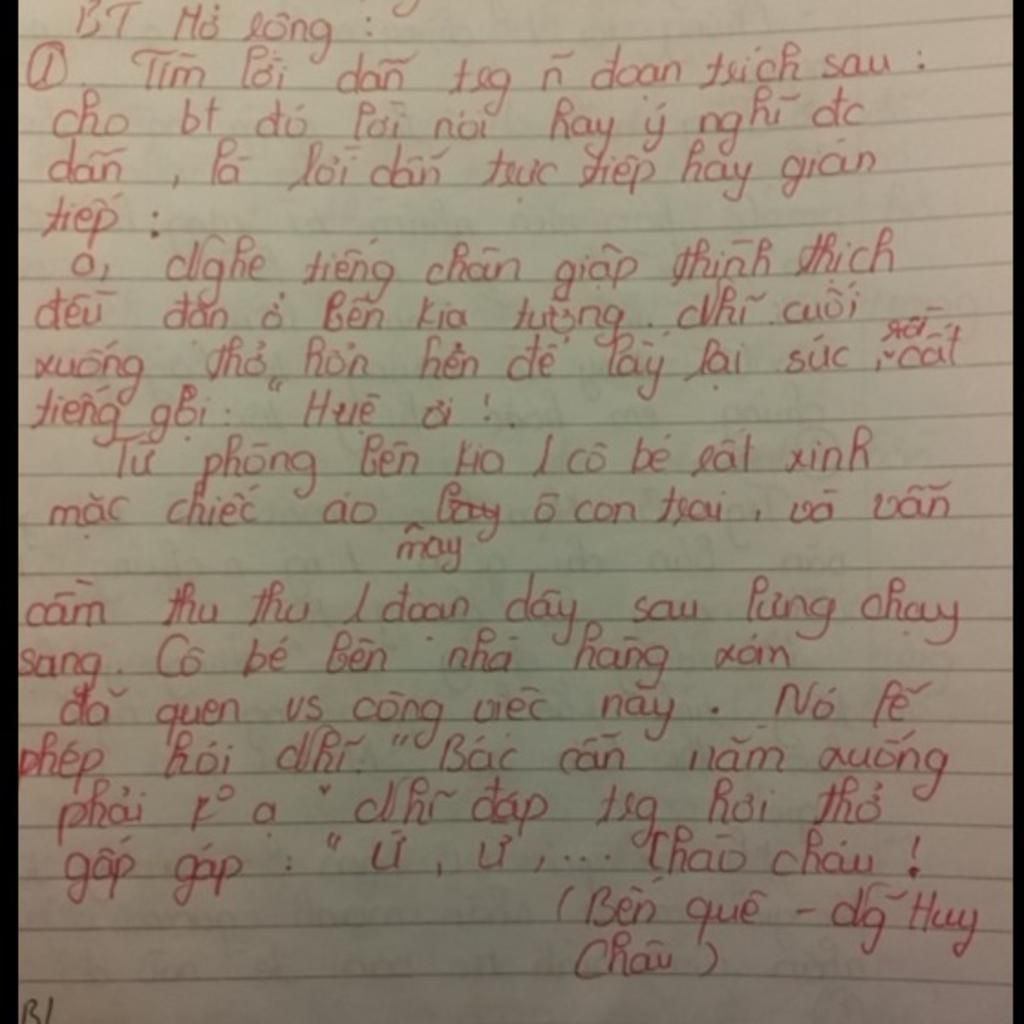 BT Mở rộng :
① Tìm lời dẫn trg ~ đoạn trích sau :
cho bt đó lời nói hay ý nghĩ đc
dẫn , là lời dẫn trực tiếp hay gián
tiếp :
a, Nghe tiếng chân giập thình thịch
đều đặn ở bên kia tường. Nhĩ cuối
xuống thở hổn hển để lấy lại sức , rồi cất
tiếng gọi : " Huệ ơi !.
Từ phòng bên kia 1 cô bé rất xinh
mặc chiếc áo may ô con trai , và vẫn
cầm thu thu 1 đoạn dây sau lưng chạy
sang. Cô bé bên nhà hàng xóm
đã quen vs công việc này . Nó lễ
phép hỏi Nhĩ : " Bác cần nằm xuống
phải k° ạ " Nhĩ đáp trg hơi thở
gấp gáp : " Ừ , ừ , ... chào cháu !
( Bến quê - Ng~ Huy
Châu )
B1